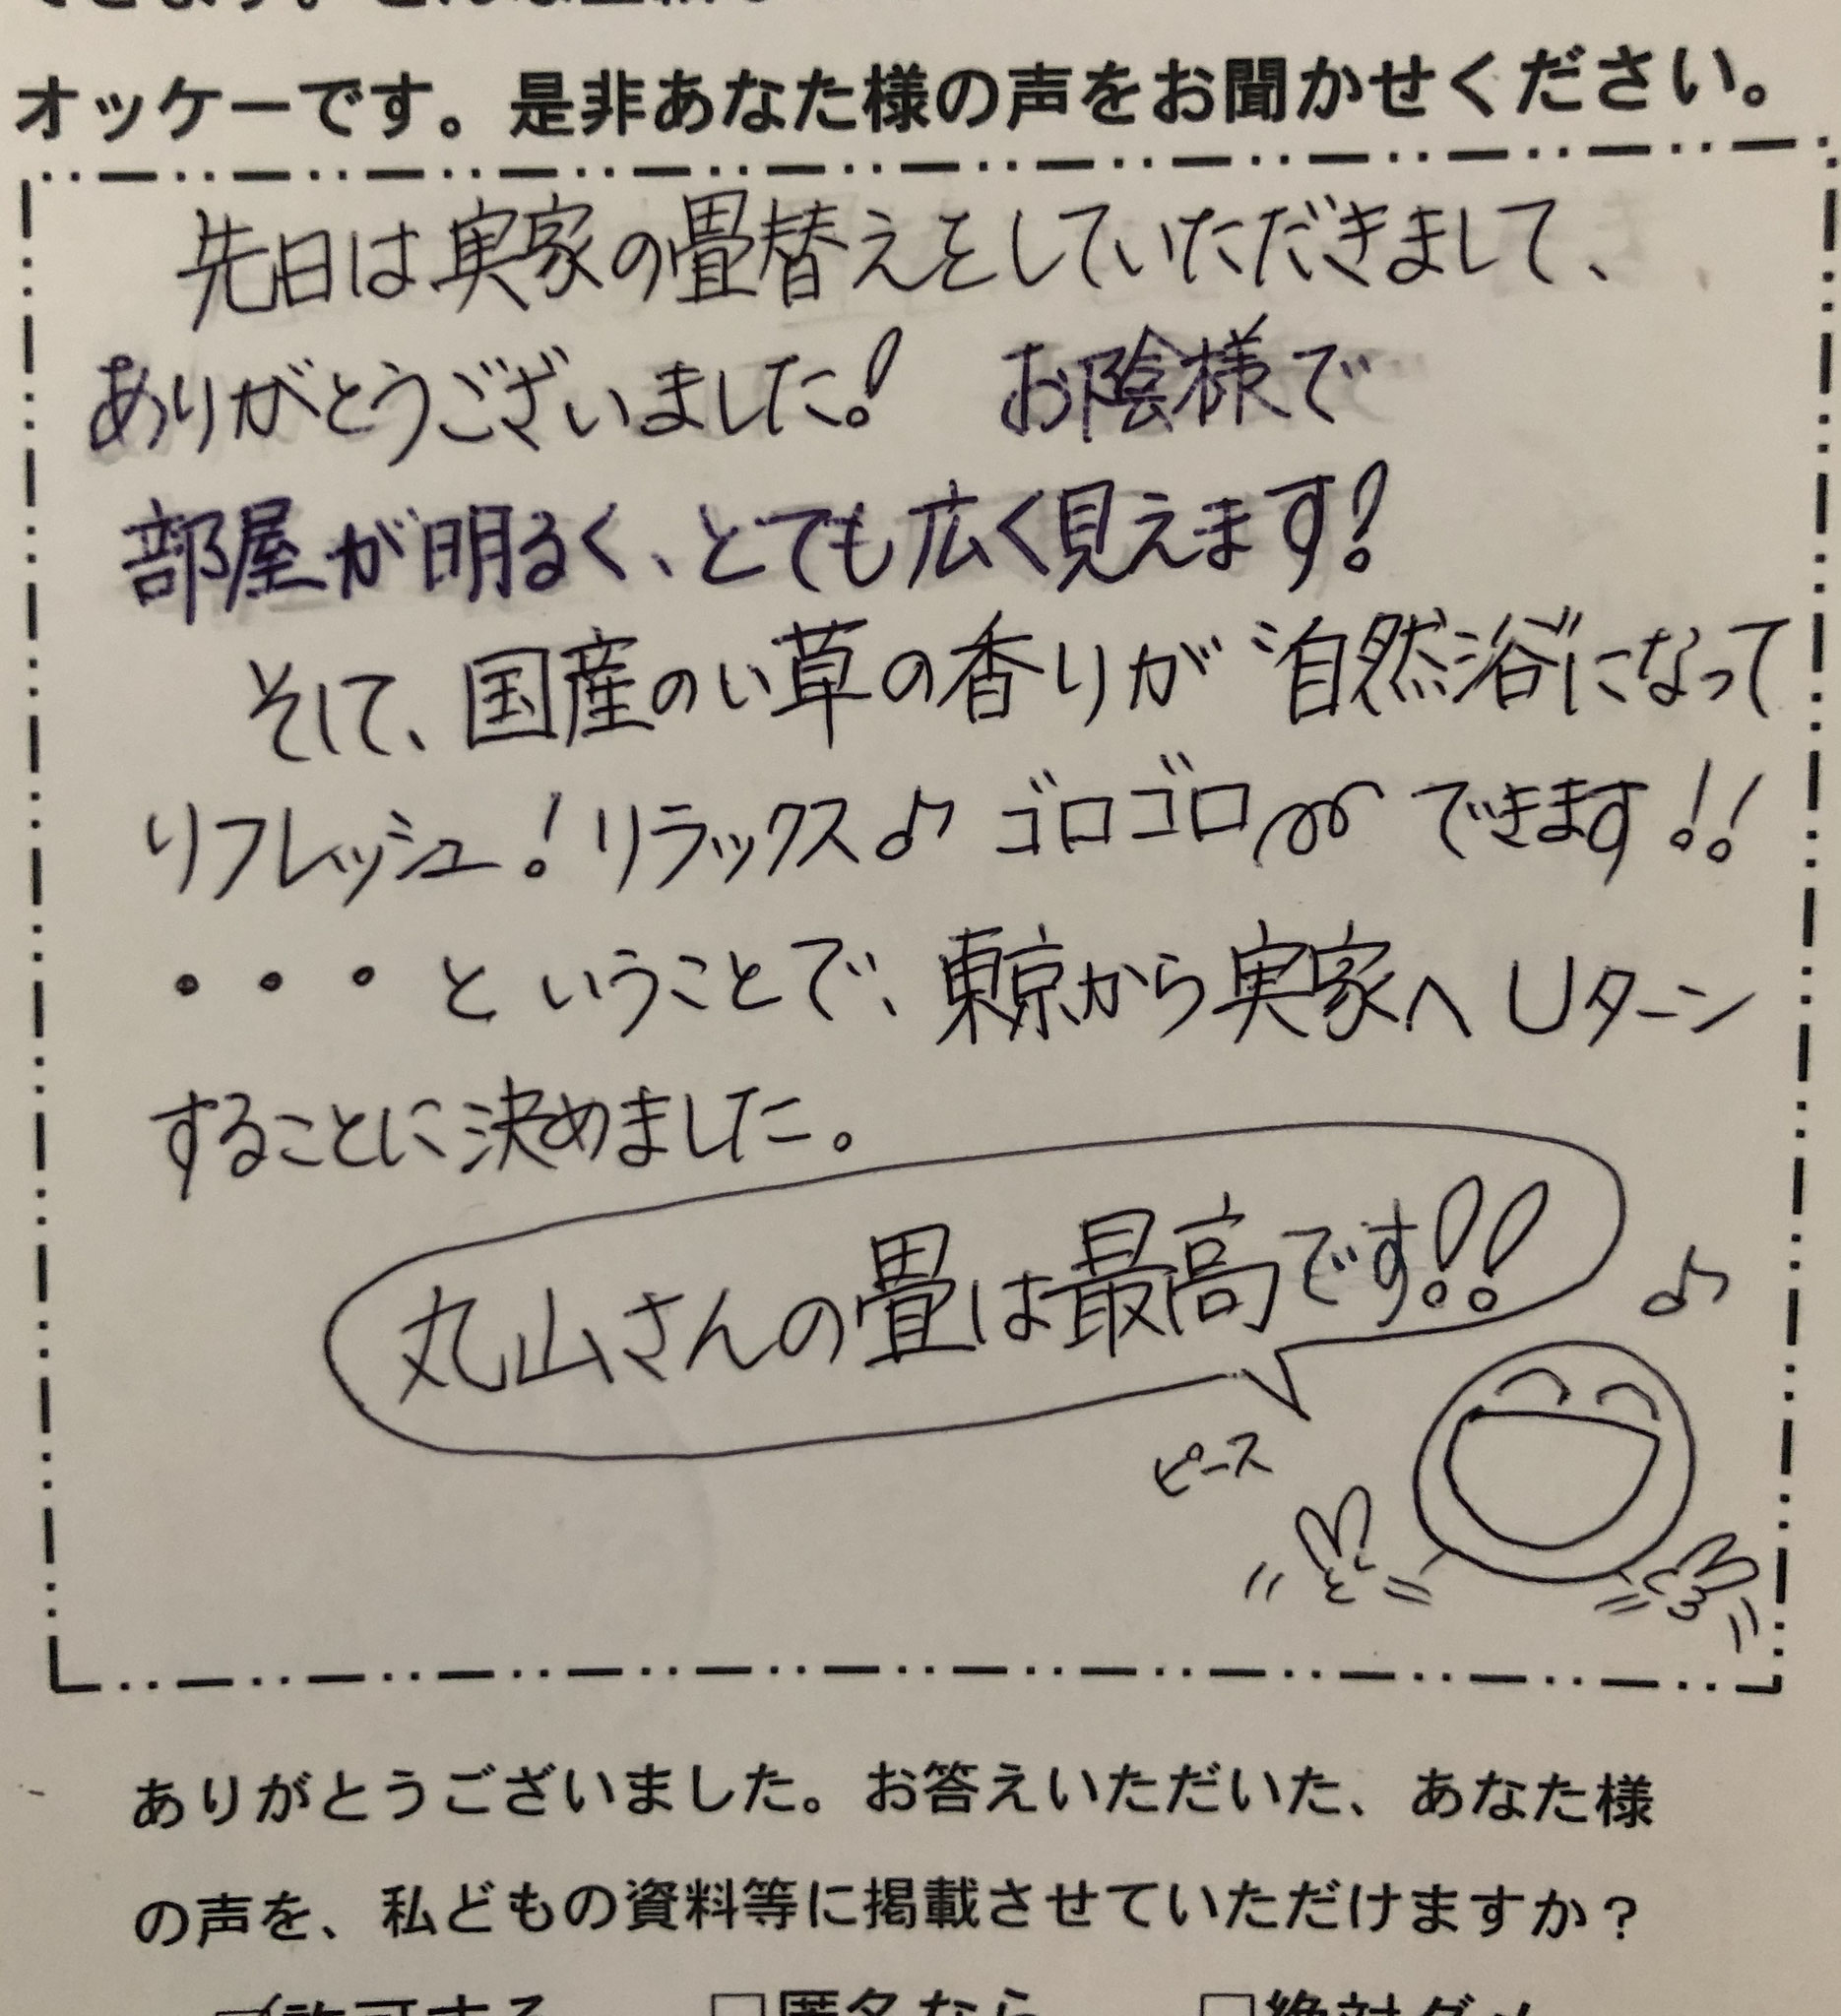 オッケーです。是非あなた様の声をお聞かせください。
先日は実家の畳替えをしていただきまして、
ありがとうございました! お陰様で
部屋が明るく、とても広く見えます!
そして、国産のい草の香りが〝自然浴〞になって
リフレッシュ!リラックス♪ ゴロゴロできます!!
・・・ということで、東京から実家へUターン
することに決めました。
丸山さんの畳は最高です!!
♪
ピース
ありがとうございました。お答えいただいた、あなた様
の声を、私どもの資料等に掲載させていただけますか?
許可する □匿名なら □絶対ダメ